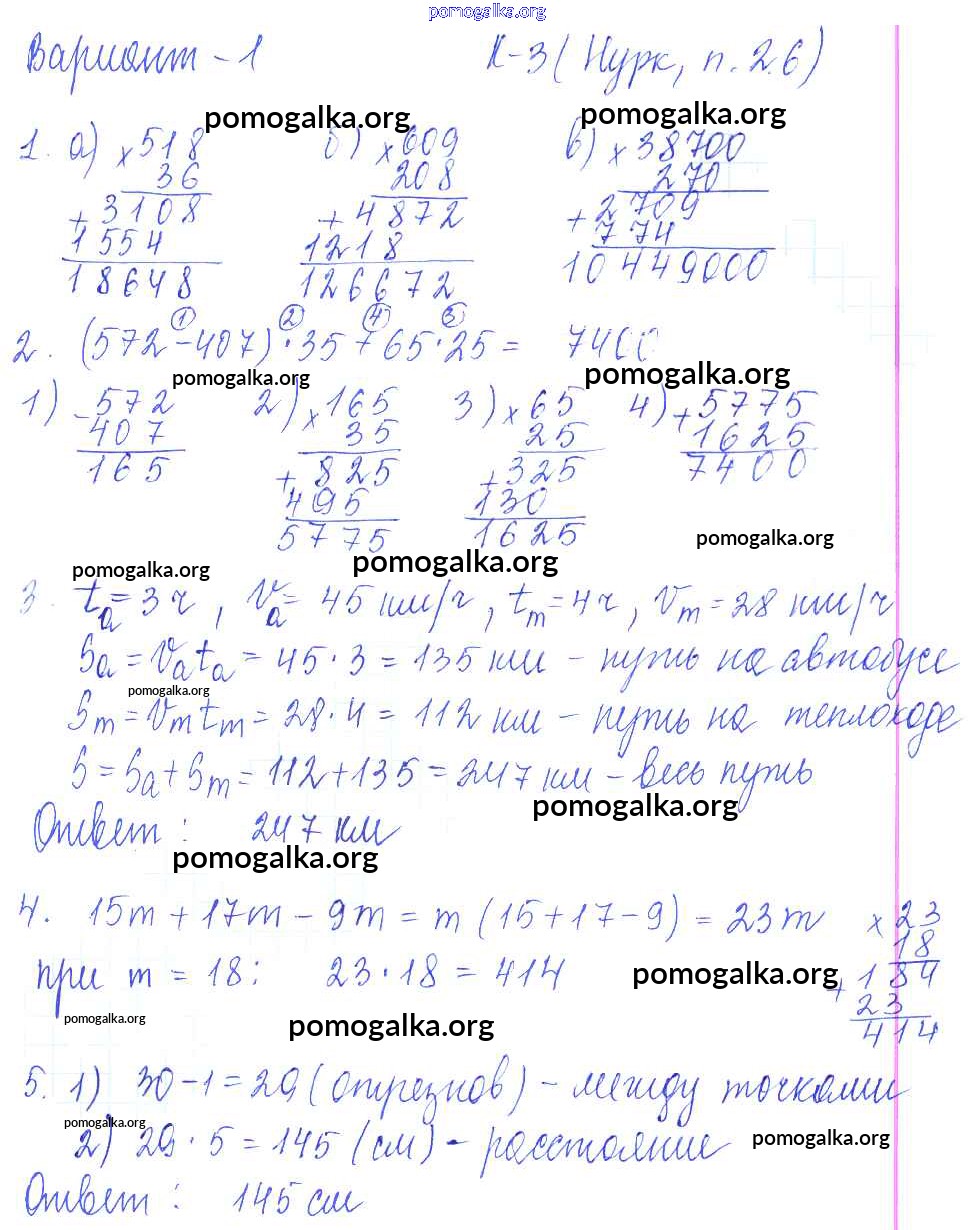 pomogalka.org
Вариант - 1 К-3 (Нурк, п. 2.6)
pomogalka.org pomogalka.org
1. а) × 518 б) × 609 в) × 38700
36 208 270
+ 3108 + 4872 + 2709
1554 1218 774
18648 126672 10449000
① ② ④ ③
2. (572 - 407) · 35 + 65 · 25 = 7400
pomogalka.org pomogalka.org
1) - 572 2) × 165 3) × 65 4) + 5775
407 35 25 1625
165 + 825 + 325 7400
495 130
5775 1625
pomogalka.org
pomogalka.org pomogalka.org
3. tа = 3 ч, Vа = 45 км/ч, tт = 4 ч, Vт = 28 км/ч
Sа = Vаtа = 45 · 3 = 135 км - путь на автобусе
pomogalka.org
Sт = Vтtт = 28 · 4 = 112 км - путь на теплоходе
S = Sа + Sт = 112 + 135 = 247 км - весь путь
pomogalka.org
Ответ: 247 км
pomogalka.org
4. 15m + 17m - 9m = m (15 + 17 - 9) = 23m × 23
18
при m = 18: 23 · 18 = 414 pomogalka.org + 184
23
pomogalka.org pomogalka.org 414
5. 1) 30 - 1 = 29 (отрезков) - между точками
pomogalka.org
2) 29 · 5 = 145 (см) - расстояние pomogalka.org
Ответ: 145 см